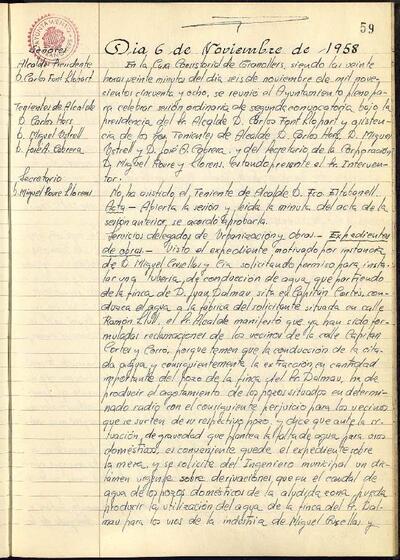 59
AYUNTAMIENTO
Señores
Alcalde Presidente
D. Carlos Font Llopart
Tenientes de Alcalde
D. Carlos Hors
D. Miguel Vetrell
D. José A. Cabrera
Secretario
D. Miguel Roure Llorens
Dia 6 de Noviembre de 1958
En la Casa Consistorial de Granollers, siendo las veinte
horas veinte minutos del dia seis de noviembre de mil nove-
cientos cincuenta y ocho, se reunió el Ayuntamiento pleno pa-
ra celebrar sesión ordinaria de segunda convocatoria, bajo la
presidencia del Sr. Alcalde D. Carlos Font Llopart y asisten-
cia de los Srs. Tenientes de Alcalde D. Carlos Hors, D. Miguel
Vetrell y D. José A. Cabrera, y del Secretario de la Corporación
D. Miguel Roure y Llorens. Estando presente el Sr. Interven-
tor.
No ha asistido el Teniente de Alcalde D. Fco. Estabanell.
Acta – Abierta la sesión y leida la minuta del acta de la
sesión anterior, se acordó aprobarla.
Servicios delegados de Urbanización y obras. – Expedientes
de obras. – Visto el expediente motivado por instancia
de D. Miguel Cruellas y Cia solicitando permiso para insta-
lar una tuberia de conducción de agua, que partiendo
de la finca de D. Juan Dalmau sita en Capitán Cortés, con-
duzca el agua a la fábrica del solicitante situada en calle
Ramón Llull, el Sr. Alcalde manifestó que ya han sido for-
muladas reclamaciones de los vecinos de la calle Capitán
Cortes y Corro, porque temen que la conducción de la cita-
da agua, y consiguientemente, la extracción en cantidad
importante del pozo de la finca del Sr. Dalmau, ha de
producir el agotamiento de los pozos situados en determi-
nado radio con el consiguiente perjuicio para los vecinos
que se surten de su respectivo pozo, y dice que ante la si-
tuación de gravedad que plantea la falta de agua para usos
domésticos, es conveniente quede el expediente sobre
la mesa, y se solicite del Ingeniero municipal un dic-
tamen urgente sobre derivaciones que en el caudal de
agua de los pozos domésticos de la aludida zona pueda
producir la utilización del agua de la finca del Sr. Dal-
mau para los usos de la industria de Miguel Cruellas y